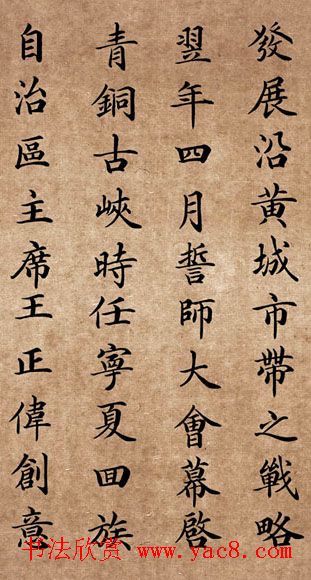 發展沿黄城市帶之戰略
翌年四月誓師大會幕啓
青銅古峽時任寧夏回族
自治區主席王正偉創意
书法欣赏 www.yac8.com